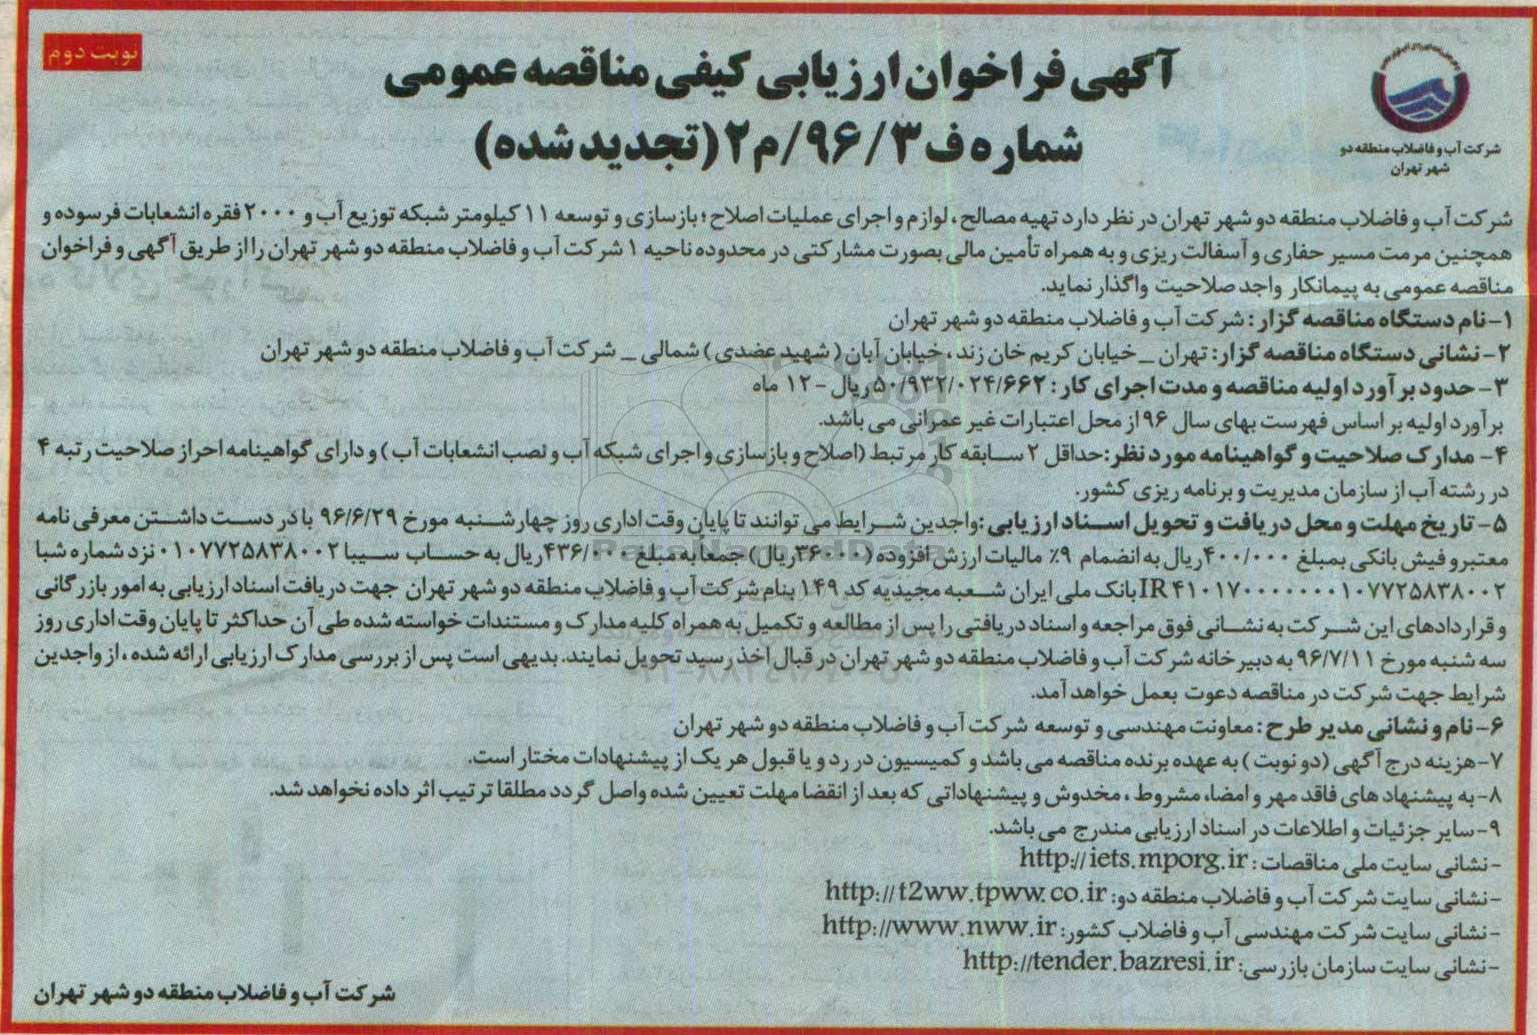 نوبت دوم
آگهی فراخوان ارزیابی کیفی مناقصه عمومی
شماره ف ۹۶/۳/م۲ (تجدید شده)
شرکت آب و فاضلاب منطقه دو
شهر تهران
شرکت آب و فاضلاب منطقه دو شهر تهران در نظر دارد تهیه مصالح، لوازم و اجرای عملیات اصلاح؛ بازسازی و توسعه ۱۱ کیلومتر شبکه توزیع آب و ۲۰۰۰ فقره انشعابات فرسوده و
همچنین مرمت مسیر حفاری و آسفالت ریزی و به همراه تأمین مالی بصورت مشارکتی در محدوده ناحیه ۱ شرکت آب و فاضلاب منطقه دو شهر تهران را از طریق آگهی و فراخوان
مناقصه عمومی به پیمانکار واجد صلاحیت واگذار نماید.
۱- نام دستگاه مناقصه گزار: شرکت آب و فاضلاب منطقه دو شهر تهران
۲- نشانی دستگاه مناقصه گزار: تهران _ خیابان کریم خان زند، خیابان آبان (شهید عضدی) شمالی _ شرکت آب و فاضلاب منطقه دو شهر تهران
۳- حدود برآورد اولیه مناقصه و مدت اجرای کار: ۵۰/۹۳۲/۰۲۴/۶۶۲ ریال - ۱۲ ماه
برآورد اولیه بر اساس فهرست بهای سال ۹۶ از محل اعتبارات غیر عمرانی می باشد.
۴- مدارک صلاحیت و گواهینامه مورد نظر: حداقل ۲ سابقه کار مرتبط (اصلاح و بازسازی و اجرای شبکه آب و نصب انشعابات آب) و دارای گواهینامه احراز صلاحیت رتبه ۴
در رشته آب از سازمان مدیریت و برنامه ریزی کشور.
۵- تاریخ مهلت و محل دریافت و تحویل اسناد ارزیابی: واجدین شرایط می توانند تا پایان وقت اداری روز چهارشنبه مورخ ۹۶/۶/۲۹ با در دست داشتن معرفی نامه
معتبر و فیش بانکی بمبلغ ۴۰۰/۰۰۰ ریال به انضمام ۹٪ مالیات ارزش افزوده (۳۶۰۰۰ ریال) جمعا به مبلغ ۴۳۶/۰۰۰ ریال به حساب سیبا ۰۱۰۷۷۲۵۸۳۸۰۰۲ نزد شماره شبا
IR ۴۱۰۱۷۰۰۰۰۰۰۰۰۱۰۷۷۲۵۸۳۸۰۰۲ بانک ملی ایران شعبه مجیدیه کد ۱۴۹ بنام شرکت آب و فاضلاب منطقه دو شهر تهران جهت دریافت اسناد ارزیابی به امور بازرگانی
و قراردادهای این شرکت به نشانی فوق مراجعه و اسناد دریافتی را پس از مطالعه و تکمیل به همراه کلیه مدارک و مستندات خواسته شده طی آن حداکثر تا پایان وقت اداری روز
سه شنبه مورخ ۹۶/۷/۱۱ به دبیرخانه شرکت آب و فاضلاب منطقه دو شهر تهران در قبال اخذ رسید تحویل نمایند. بدیهی است پس از بررسی مدارک ارزیابی ارائه شده، از واجدین
شرایط جهت شرکت در مناقصه دعوت بعمل خواهد آمد.
۶- نام و نشانی مدیر طرح: معاونت مهندسی و توسعه شرکت آب و فاضلاب منطقه دو شهر تهران
۷- هزینه درج آگهی (دو نوبت) به عهده برنده مناقصه می باشد و کمیسیون در رد و یا قبول هر یک از پیشنهادات مختار است.
۸- به پیشنهاد های فاقد مهر و امضاء، مشروط، مخدوش و پیشنهاداتی که بعد از انقضا مهلت تعیین شده واصل گردد مطلقا ترتیب اثر داده نخواهد شد.
۹- سایر جزئیات و اطلاعات در اسناد ارزیابی مندرج می باشد.
- نشانی سایت ملی مناقصات: http://iets.mporg.ir
- نشانی سایت شرکت آب و فاضلاب منطقه دو: http://t2ww.tpww.co.ir
- نشانی سایت شرکت مهندسی آب و فاضلاب کشور: http://www.nww.ir
- نشانی سایت سازمان بازرسی: http://tender.bazresi.ir
شرکت آب و فاضلاب منطقه دو شهر تهران